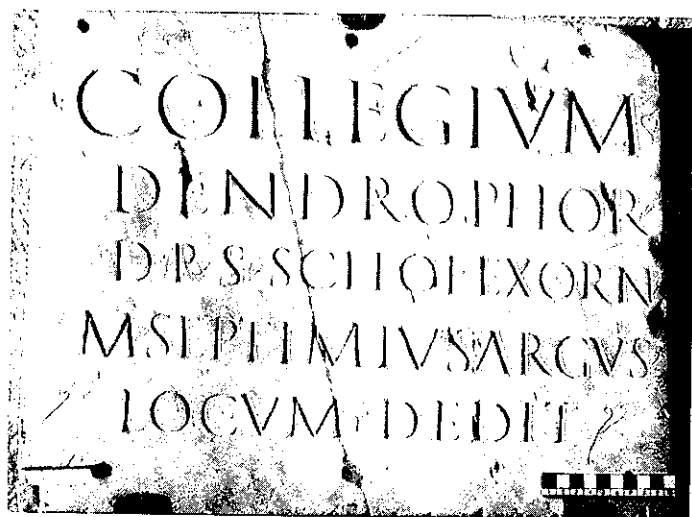 COLLEGIVM
DENDROPHOR
D P S SCHOL EXORN
M SEPTIMIVS ARGVS
LOCVM DEDIT